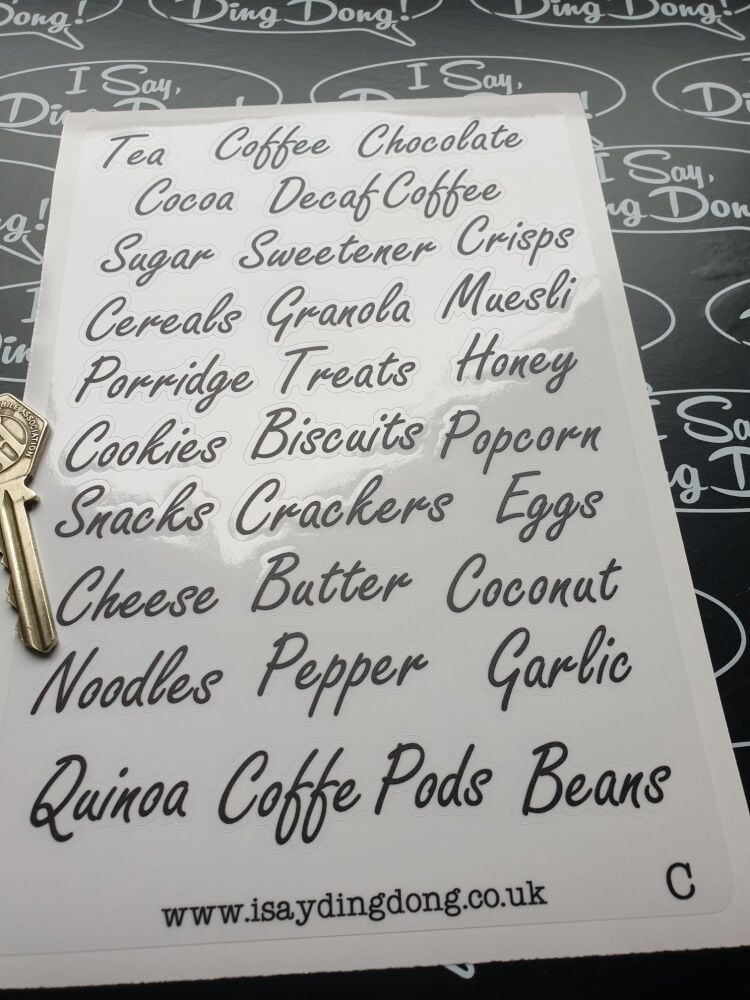 Ding Dong!
Ding Dong!
I Say,
Ding Dong!
I Say,
I Say,
Ding Dong!
Tea Coffee Chocolate
Cocoa Decaf Coffee
Sugar Sweetener Crisps
Cereals Granola Muesli
Porridge Treats Honey
Cookies Biscuits Popcorn
Snacks Crackers Eggs
Cheese Butter Coconut
Noodles Pepper Garlic
Quinoa Coffe Pods Beans
www.isaydingdong.co.uk C